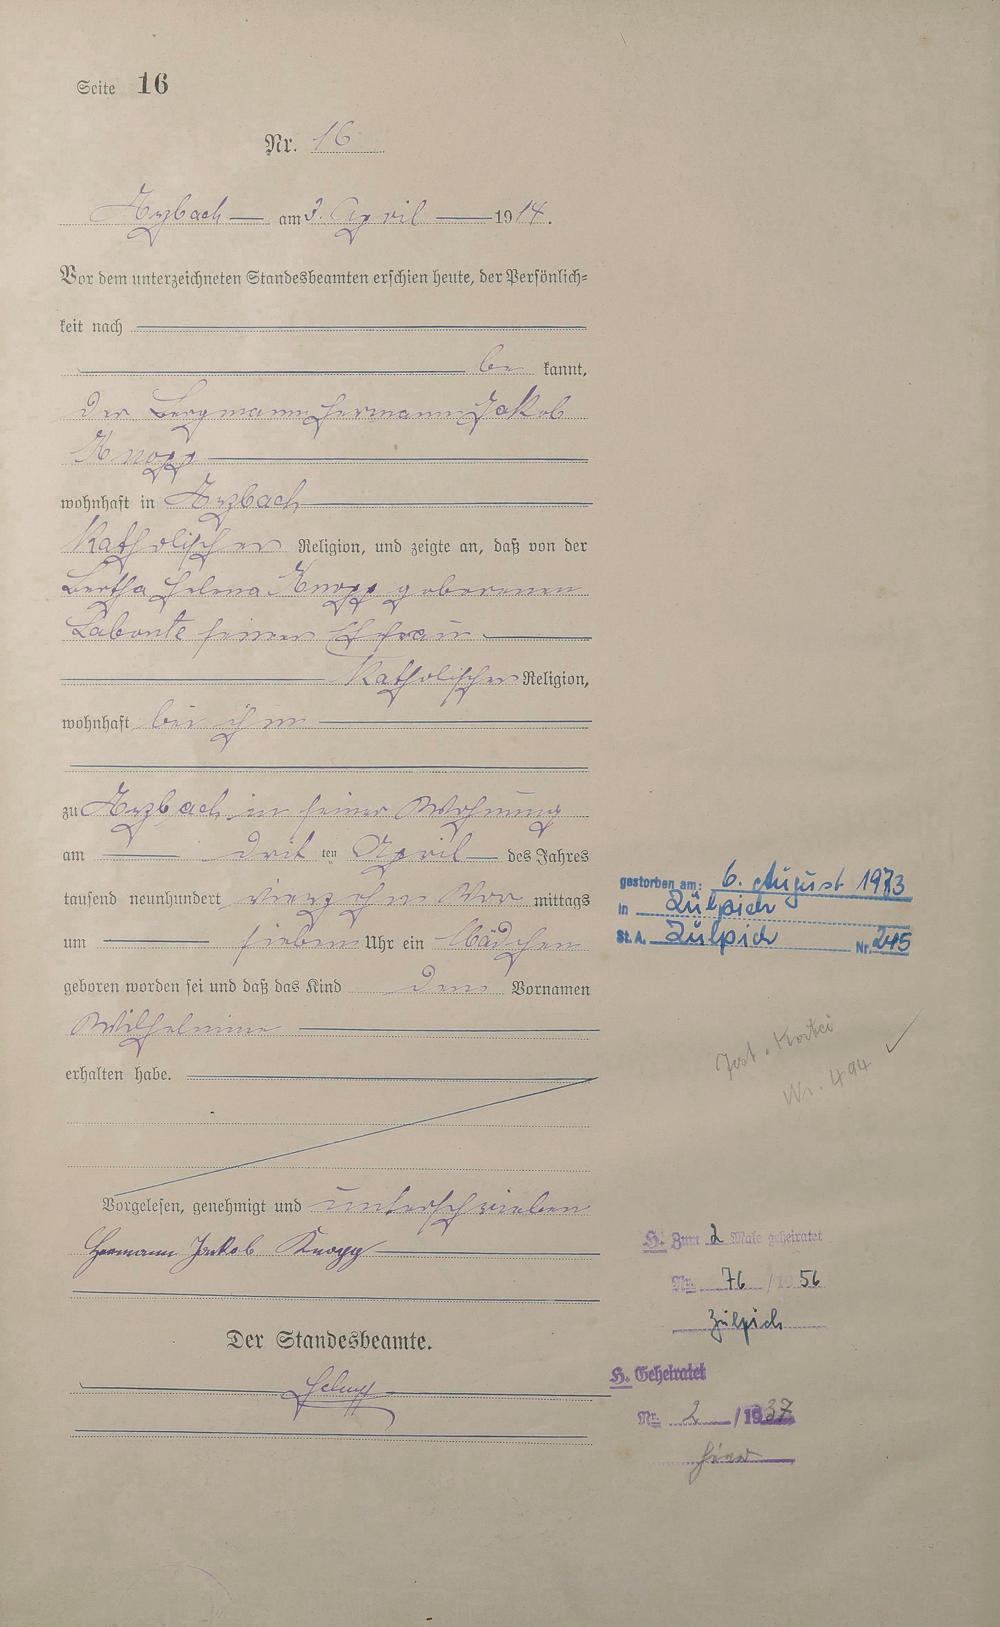 Seite 16
Nr. 16
Arzbach am 3. April 1914.
Vor dem unterzeichneten Standesbeamten erschien heute, der Persönlich-
keit nach
be kannt,
der Bergmann Hermann Jakob
Knopp
wohnhaft in Arzbach
Katholischer Religion, und zeigte an, daß von der
Bertha Helena Knopp geborenen
Labonte seiner Ehefrau
Katholischer Religion,
wohnhaft bei ihm
zu Arzbach in seiner Wohnung
am drit ten April des Jahres
tausend neunhundert vierzehn Vor mittags
um sieben Uhr ein Mädchen
geboren worden sei und daß das Kind den Vornamen
Wilhelmine
erhalten habe.
Vorgelesen, genehmigt und unterschrieben
Hermann Jakob Knopp
Der Standesbeamte.
gestorben am: 6. August 1973
in Zülpich
St. A. Zülpich Nr. 245
Nr. 494
H. Zum 2 Male geheiratet
Nr. 76 / 1956
Zülpich
H. Geheiratet
Nr. 2 / 1937
hier